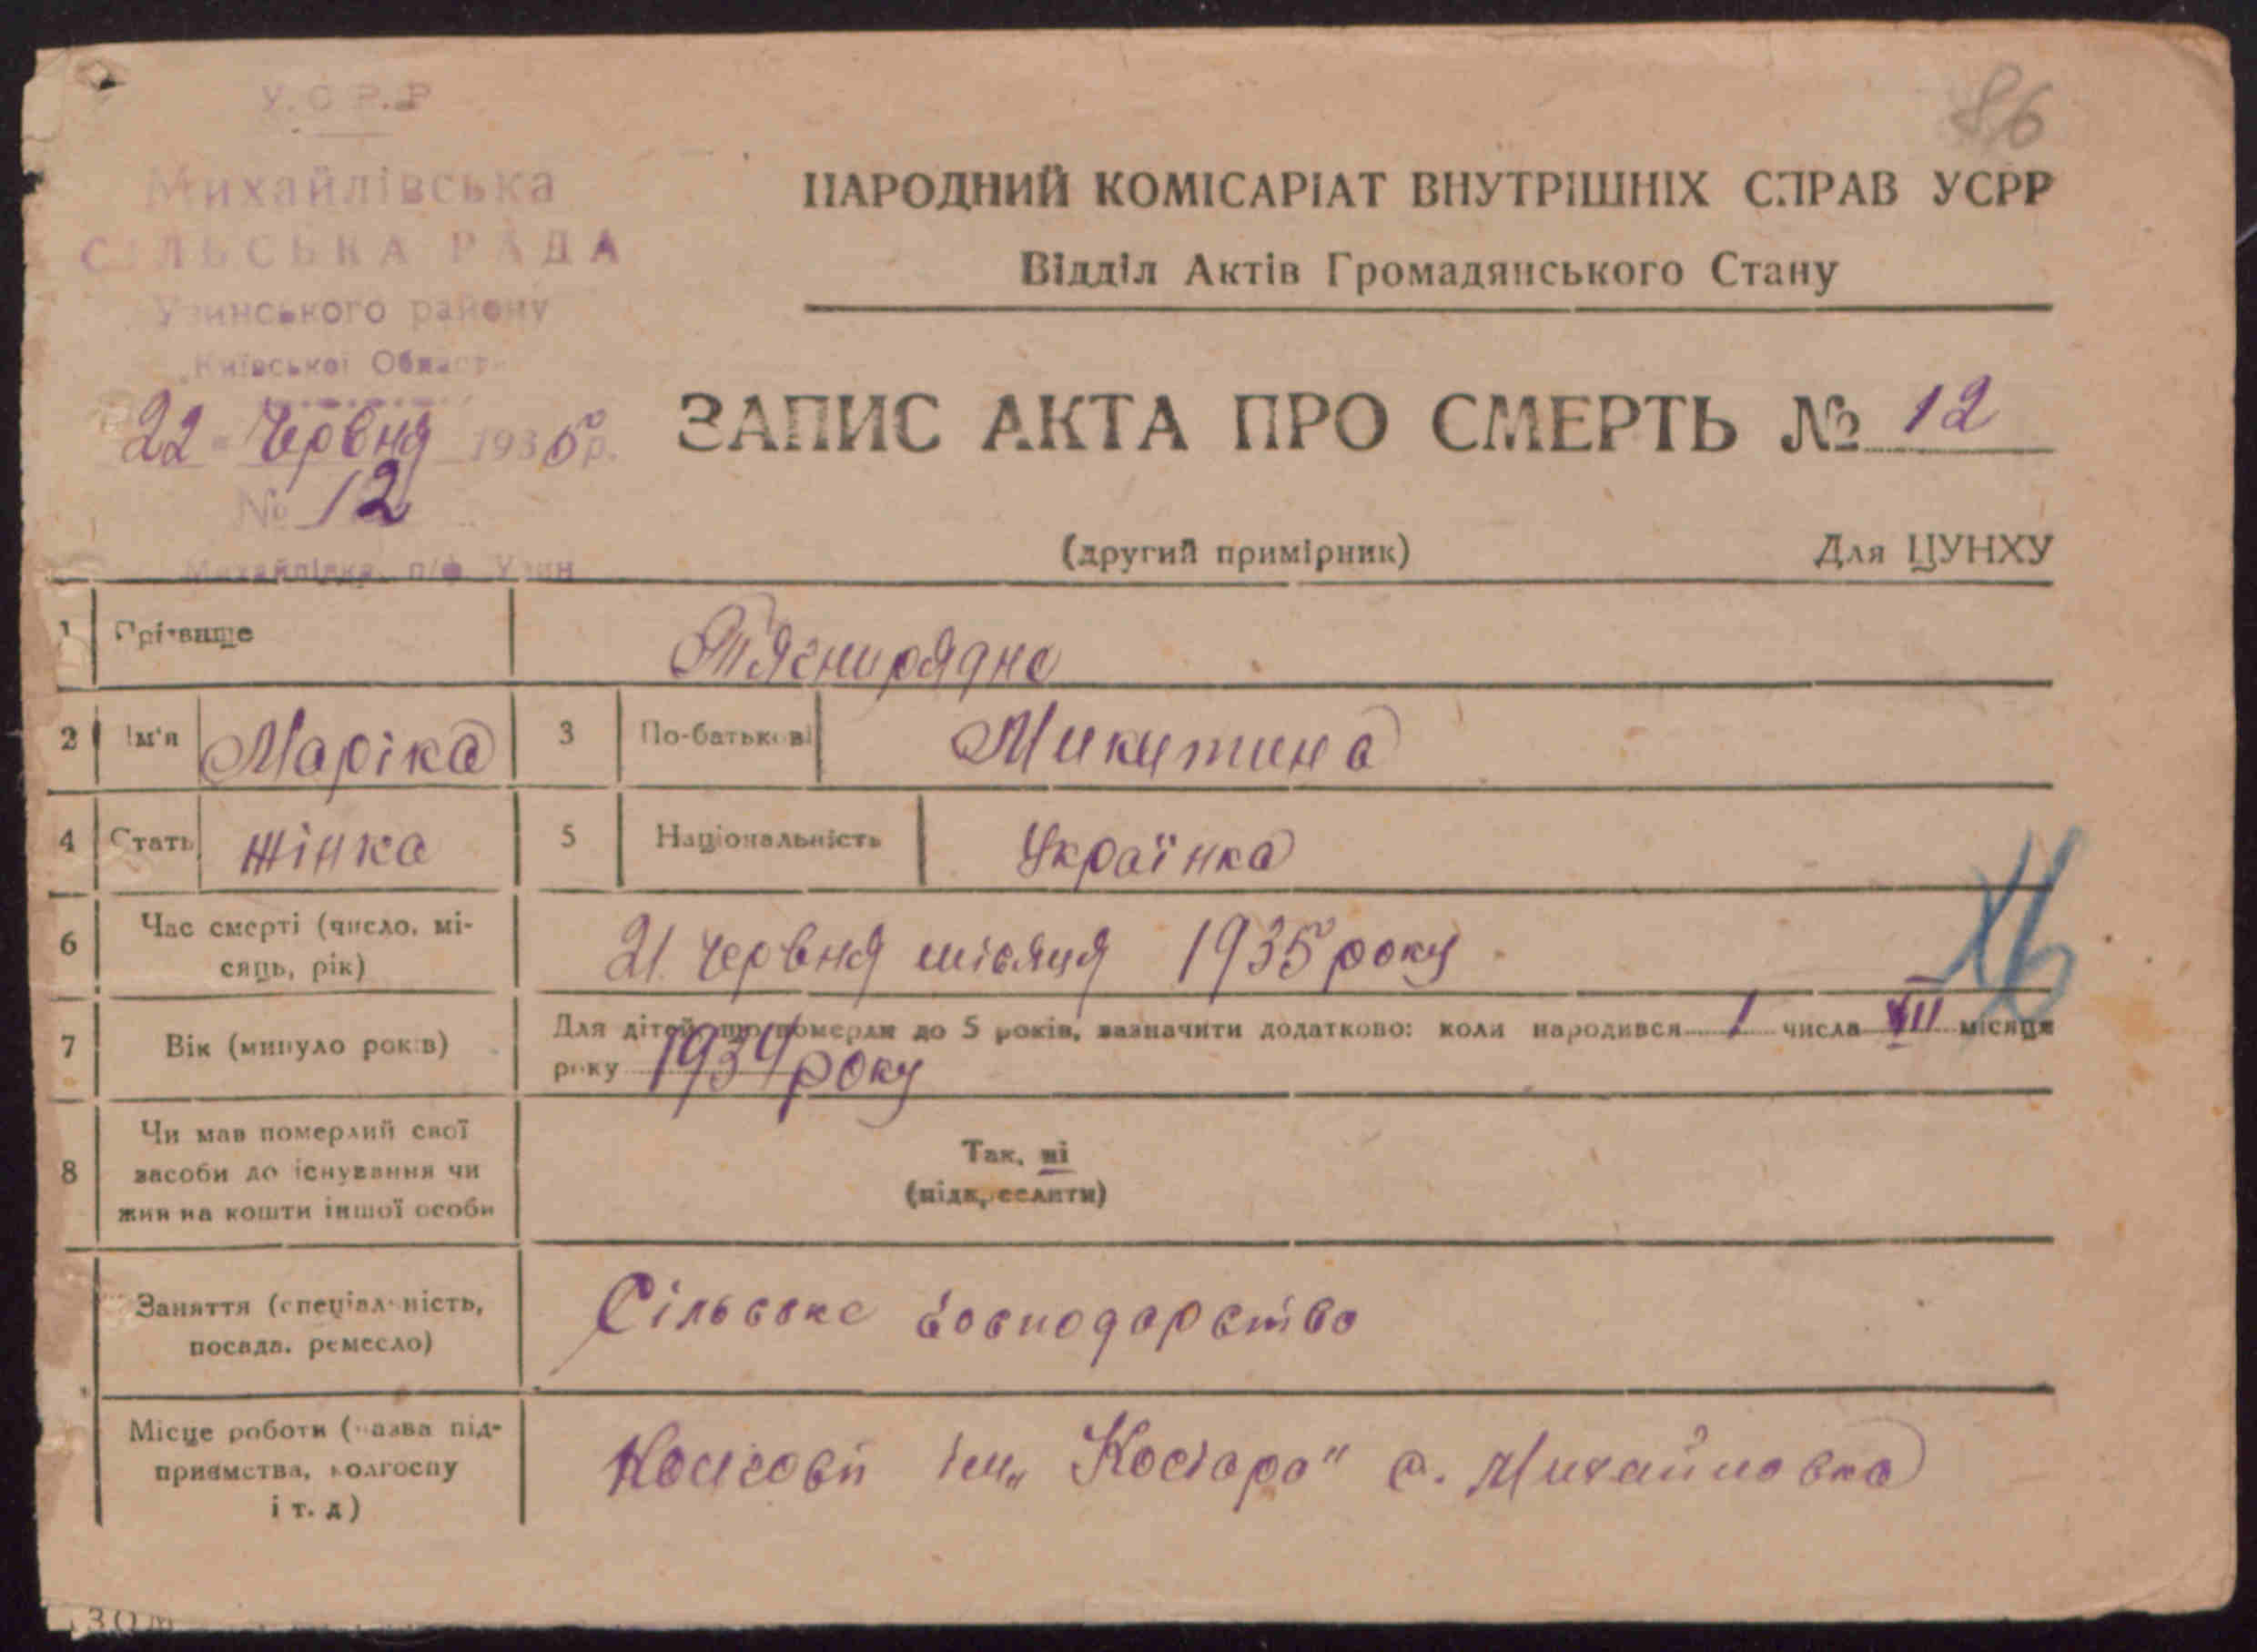 У.С.Р.Р
86
Михайлівська
СІЛЬСЬКА РАДА
Узинського району
Київської Області
22 - Червня 1935 р.
№ 12
Михайлівка, п/ф Узин
НАРОДНИЙ КОМІСАРІАТ ВНУТРІШНІХ СПРАВ УСРР
Відділ Актів Громадянського Стану
ЗАПИС АКТА ПРО СМЕРТЬ № 12
(другий примірник) Для ЦУНХУ
1 Прізвище Тягнирядно
2 Ім'я Маріка 3 По-батькові Микитина
4 Стать жінка 5 Національність Українка
6 Час смерті (число, мі-
сяць, рік) 21 червня місяця 1935 року
7 Вік (минуло років) Для дітей, що померли до 5 років, зазначити додатково: коли народився 1 числа VII місяця
року 1934 року
8 Чи мав померлий свої
засоби до існування чи
жив на кошти іншої особи
Так, ні
(підкреслити)
Заняття (спеціальність,
посада, ремесло) Сільське господарство
Місце роботи (назва під-
приємства, колгоспу
і т. д) ім „ Косіора" с. Михайловка